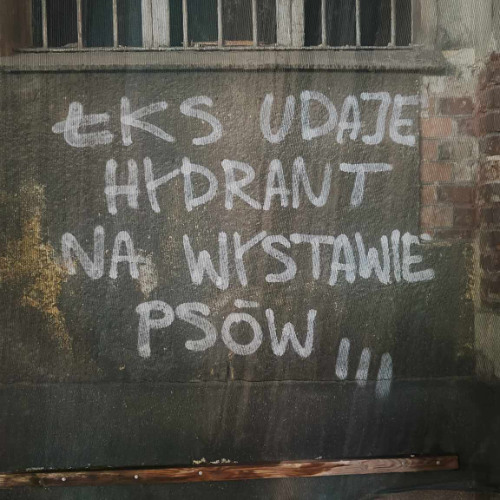 ŁKS UDAJE
HYDRANT
NA WYSTAWIE
PSÓW !!!